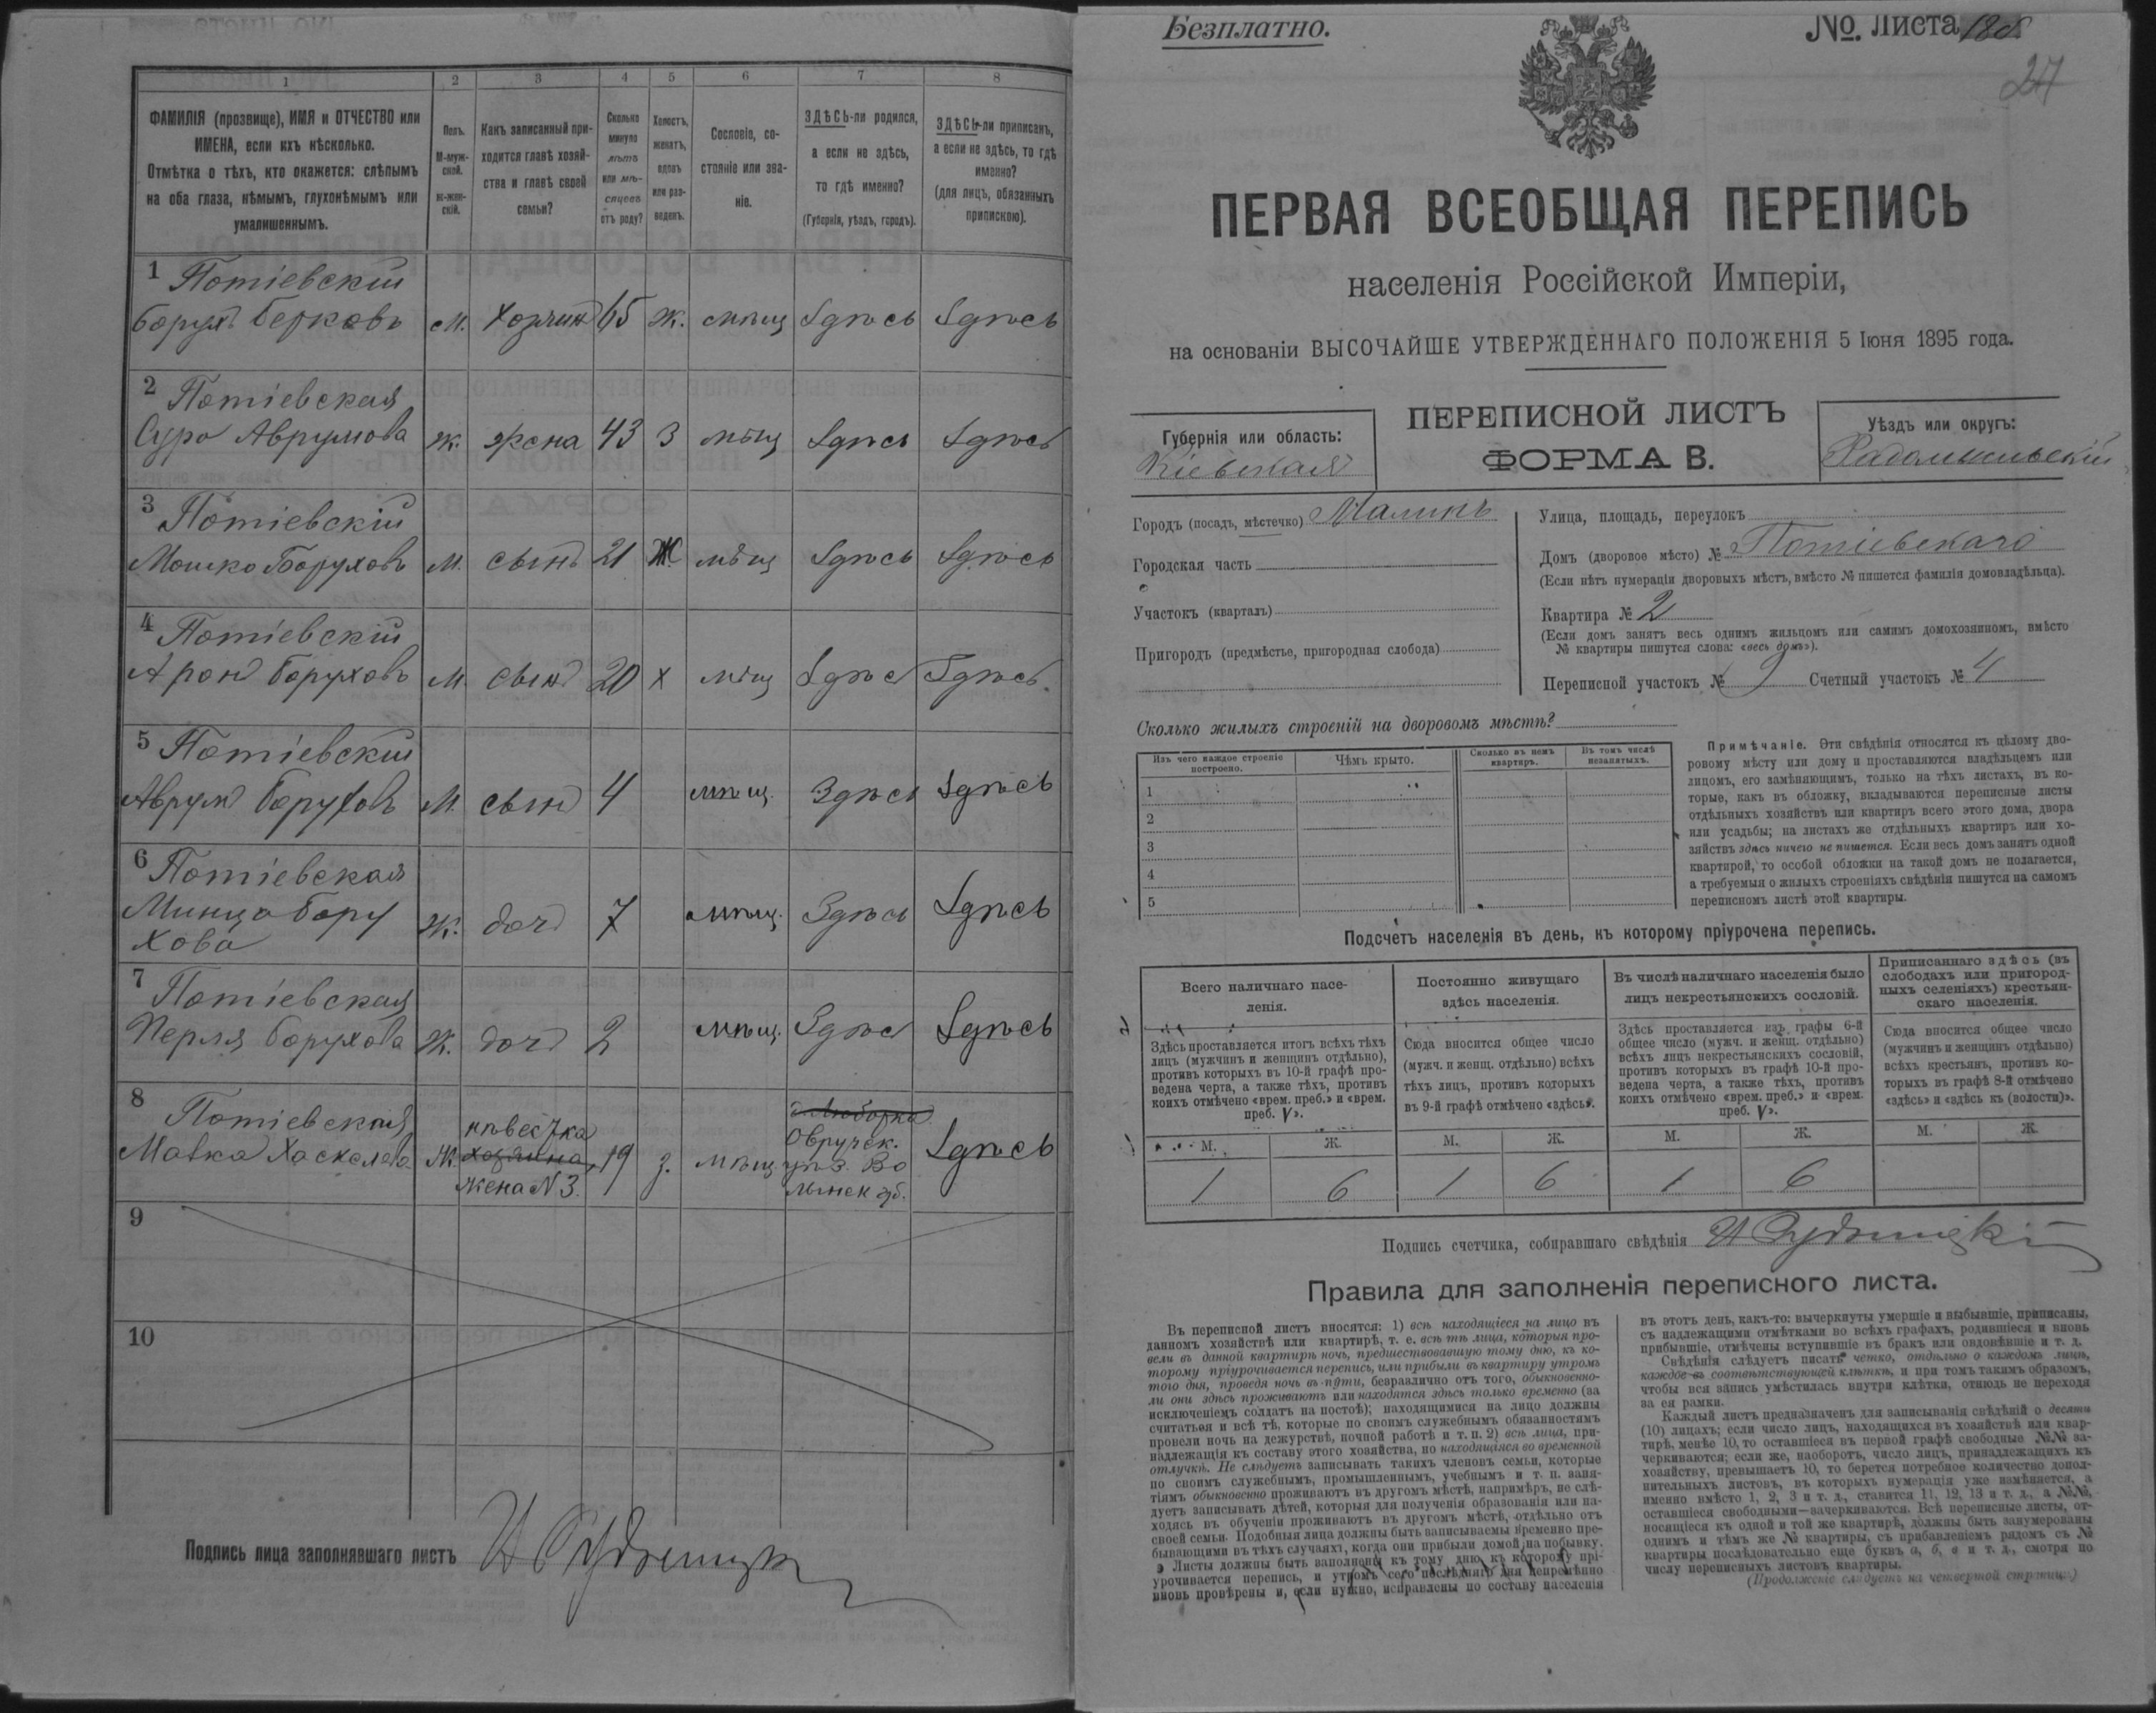 1 2 3 4 5 6 7 8
ФАМИЛІЯ (прозвище), ИМЯ и ОТЧЕСТВО или
ИМЕНА, если ихъ нѣсколько.
Отмѣтка о тѣхъ, кто окажется: слѣпымъ
на оба глаза, нѣмымъ, глухонѣмымъ или
умалишеннымъ.
Полъ.
М-муж-
ской.
ж-жен-
скій.
Какъ записанный при-
ходится главѣ хозяй-
ства и главѣ своей
семьи?
Сколько
минуло
лѣтъ
или мѣ-
сяцевъ
отъ роду?
Холостъ,
женатъ,
вдовъ
или раз-
веденъ.
Сословіе, со-
стояніе или зва-
ніе.
ЗДѢСЬ-ли родился,
а если не здѣсь,
то гдѣ именно?
(Губернія, уѣздъ, городъ).
ЗДѢСЬ-ли приписанъ,
а если не здѣсь, то гдѣ
именно?
(для лицъ, обязанныхъ
припискою).
1 Потіевскій
Борухъ Берковъ м. Хозяин 45 ж. мѣщ Здѣсь Здѣсь
2 Потіевская
Сура Аврумова ж. жена 43 З мѣщ Здѣсь Здѣсь
3 Потіевскій
Мошко Боруховъ м. сынъ 21 Ж. мѣщ Здѣсь Здѣсь
4 Потіевскій
Арон Боруховъ м. сын 20 х мѣщ Здѣсь Здѣсь
5 Потіевскій
Аврум Боруховъ м. сын 4 мѣщ. Здѣсь Здѣсь
6 Потіевская
Минца Бору
хова ж. доч 7 мѣщ. Здѣсь Здѣсь
7 Потіевская
Перля Борухова ж. доч 2 мѣщ. Здѣсь Здѣсь
8 Потіевская
Малка Хаскелева ж. невестка хозяина жена N 3. 19 з. мѣщ Овручск. уѣз. Волынск губ. Здѣсь
9
10
Подпись лица заполнявшаго листъ
Безплатно.
№. Листа 18
24
ПЕРВАЯ ВСЕОБЩАЯ ПЕРЕПИСЬ
населенія Россійской Имперіи,
на основаніи ВЫСОЧАЙШЕ УТВЕРЖДЕННАГО ПОЛОЖЕНІЯ 5 Іюня 1895 года.
Губернія или область:
Кіевская
ПЕРЕПИСНОЙ ЛИСТЪ
ФОРМА В.
Уѣздъ или округъ:
Радомысльскій
Городъ (посадъ, мѣстечко) Малинъ
Городская часть
Участокъ (кварталъ)
Пригородъ (предмѣстье, пригородная слобода)
Улица, площадь, переулокъ
Домъ (дворовое мѣсто) № Потіевскаго
(Если нѣтъ нумераціи дворовыхъ мѣстъ, вмѣсто № пишется фамилія домовладѣльца).
Квартира № 2
(Если домъ занятъ весь однимъ жильцомъ или самимъ домохозяиномъ, вмѣсто
№ квартиры пишутся слова: «весь домъ»).
Переписной участокъ № 9 Счетный участокъ № 4
Сколько жилыхъ строеній на дворовомъ мѣстѣ?
Изъ чего каждое строеніе
построено.
Чѣмъ крыто.
Сколько въ немъ
квартиръ.
Въ томъ числѣ
незанятыхъ.
1
2
3
4
5
Примѣчаніе. Эти свѣдѣнія относятся къ цѣлому дво-
ровому мѣсту или дому и проставляются владѣльцемъ или
лицомъ, его замѣняющимъ, только на тѣхъ листахъ, въ ко-
торые, какъ въ обложку, вкладываются переписные листы
отдѣльныхъ хозяйствъ или квартиръ всего этого дома, двора
или усадьбы; на листахъ же отдѣльныхъ квартиръ или хо-
зяйствъ здѣсь ничего не пишется. Если весь домъ занятъ одной
квартирой, то особой обложки на такой домъ не полагается,
а требуемыя о жилыхъ строеніяхъ свѣдѣнія пишутся на самомъ
переписномъ листѣ этой квартиры.
Подсчетъ населенія въ день, къ которому пріурочена перепись.
Всего наличнаго насе-
ленія.
Здѣсь проставляется итогъ всѣхъ тѣхъ
лицъ (мужчинъ и женщинъ отдѣльно),
противъ которыхъ въ 10-й графѣ про-
ведена черта, а также тѣхъ, противъ
коихъ отмѣчено «врем. преб.» и «врем.
преб. V».
Постоянно живущаго
здѣсь населенія.
Сюда вносится общее число
(мужч. и женщ. отдѣльно) всѣхъ
тѣхъ лицъ, противъ которыхъ
въ 9-й графѣ отмѣчено «здѣсь».
Въ числѣ наличнаго населенія было
лицъ некрестьянскихъ сословій.
Здѣсь проставляется изъ графы 6-й
общее число (мужч. и женщ. отдѣльно)
всѣхъ лицъ некрестьянскихъ сословій,
противъ которыхъ въ графѣ 10-й про-
ведена черта, а также тѣхъ, противъ
коихъ отмѣчено «врем. преб.» и «врем.
преб. V».
Приписаннаго здѣсь (въ
слободахъ или пригород-
ныхъ селеніяхъ) крестьян-
скаго населенія.
Сюда вносится общее число
(мужчинъ и женщинъ отдѣльно)
всѣхъ крестьянъ, противъ ко-
торыхъ въ графѣ 8-й отмѣчено
«здѣсь» и «здѣсь къ (волости)».
М. Ж. М. Ж. М. Ж. М. Ж.
1 6 1 6 1 6
Подпись счетчика, собиравшаго свѣдѣнія
Правила для заполненія переписного листа.
Въ переписной листъ вносятся: 1) всѣ находящіеся на лицо въ
данномъ хозяйствѣ или квартирѣ, т. е. всѣ тѣ лица, которыя про-
вели въ данной квартирѣ ночь, предшествовавшую тому дню, къ ко-
торому пріурочивается перепись, или прибыли въ квартиру утромъ
того дня, проведя ночь въ пути, безразлично отъ того, обыкновенно-
ли они здѣсь проживаютъ или находятся здѣсь только временно (за
исключеніемъ солдатъ на постоѣ); находящимися на лицо должны
считаться и всѣ тѣ, которые по своимъ служебнымъ обязанностямъ
провели ночь на дежурствѣ, ночной работѣ и т. п. 2) всѣ лица, при-
надлежащія къ составу этого хозяйства, но находящіяся во временной
отлучкѣ. Не слѣдуетъ записывать такихъ членовъ семьи, которые
по своимъ служебнымъ, промышленнымъ, учебнымъ и т. п. заня-
тіямъ обыкновенно проживаютъ въ другомъ мѣстѣ, напримѣръ, не слѣ-
дуетъ записывать дѣтей, которыя для полученія образованія или на-
ходясь въ обученіи проживаютъ въ другомъ мѣстѣ, отдѣльно отъ
своей семьи. Подобныя лица должны быть записываемы временно пре-
бывающими въ тѣхъ случаяхъ, когда они прибыли домой на побывку.
Листы должны быть заполнены къ тому дню къ которому прі-
урочивается перепись, и утромъ сего послѣдняго дня непремѣнно
вновь провѣрены и, если нужно, исправлены по составу населенія
въ этотъ день, какъ-то: вычеркнуты умершіе и выбывшіе, приписаны,
съ надлежащими отмѣтками во всѣхъ графахъ, родившіеся и вновь
прибывшіе, отмѣчены вступившіе въ бракъ или овдовѣвшіе и т. д.
Свѣдѣнія слѣдуетъ писать четко, отдѣльно о каждомъ лицѣ,
каждое въ соотвѣтствующей клѣткѣ, и при томъ такимъ образомъ,
чтобы вся запись умѣстилась внутри клѣтки, отнюдь не переходя
за ея рамки.
Каждый листъ предназначенъ для записыванія свѣдѣній о десяти
(10) лицахъ; если число лицъ, находящихся въ хозяйствѣ или квар-
тирѣ, менѣе 10, то оставшіеся въ первой графѣ свободные №№ за-
черкиваются; если же, наоборотъ, число лицъ, принадлежащихъ къ
хозяйству, превышаетъ 10, то берется потребное количество допол-
нительныхъ листовъ, въ которыхъ нумерація уже измѣняется, а
именно вмѣсто 1, 2, 3 и т. д., ставится 11, 12, 13 и т. д., а №№,
оставшіеся свободными—зачеркиваются. Всѣ переписные листы, от-
носящіеся къ одной и той же квартирѣ, должны быть занумерованы
однимъ и тѣмъ же № квартиры, съ прибавленіемъ рядомъ съ №
квартиры послѣдовательно еще буквъ а, б, в и т. д., смотря по
числу переписныхъ листовъ квартиры.
(Продолженіе слѣдуетъ на четвертой страницѣ)